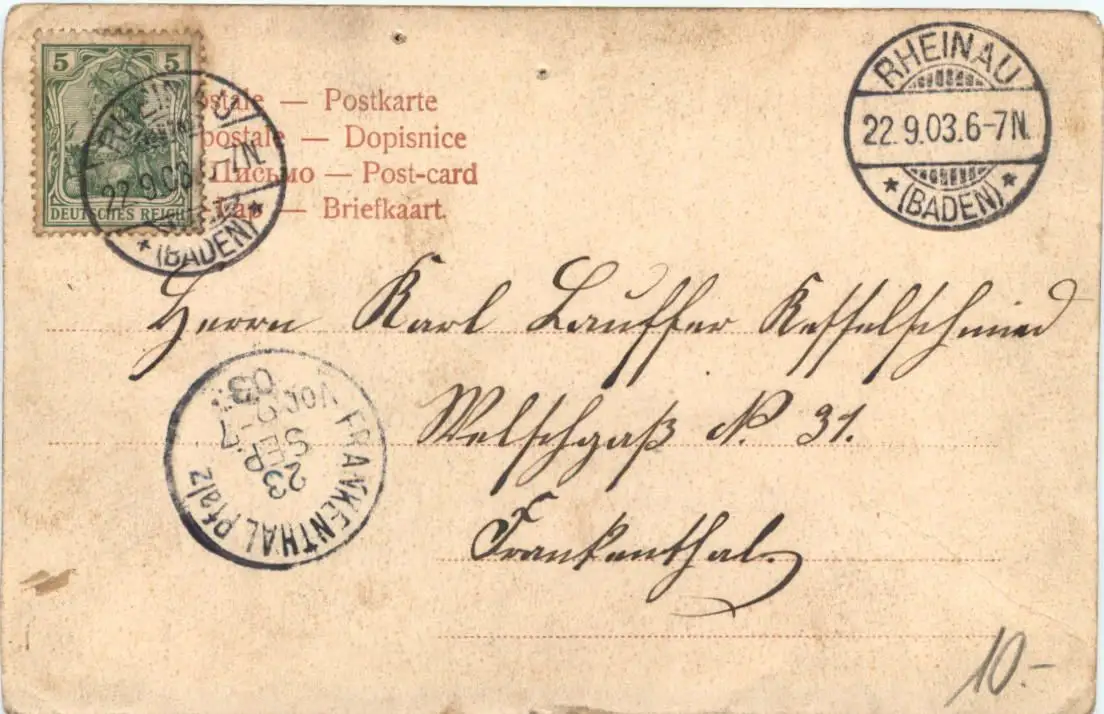 5 5
DEUTSCHES REICH
22.9.03. 7N.
(BADEN)
postale — Postkarte
postale — Dopisnice
Письмо — Post-card
— Briefkaart.
RHEINAU
22.9.03.6-7N.
(BADEN)
Herrn Karl Lauffer Kesselschmied
Welschgaß No. 31.
Frankenthal.
FRANKENTHAL Pfalz
23 SEP
03
10.-